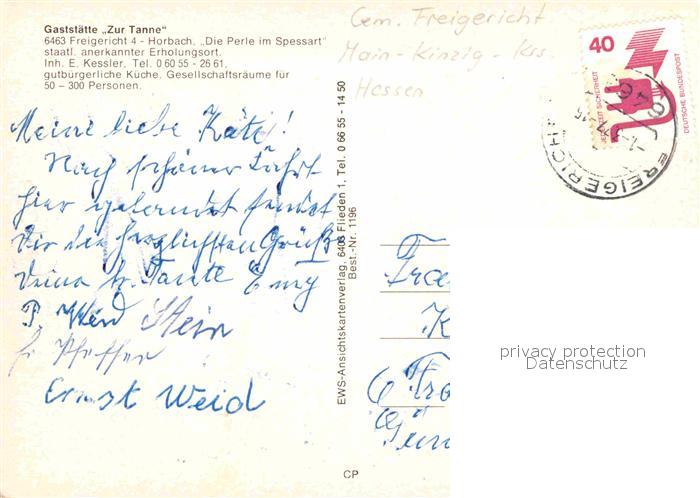 Gaststätte „Zur Tanne"
6463 Freigericht 4 - Horbach, „Die Perle im Spessart"
staatl. anerkannter Erholungsort.
Inh. E. Kessler, Tel. 0 60 55 - 26 61,
gutbürgerliche Küche, Gesellschaftsräume für
50 – 300 Personen.
Gem. Freigericht
Main-Kinzig-Krs.
Hessen
40
JEDERZEIT SICHERHEIT
DEUTSCHE BUNDESPOST
FREIGERICHT
Meine liebe Käte!
Nach schöner Fahrt
hier gelandet sendet
dir die herzlichsten Grüße
Deine Tante Emy
Stein
Pfeffer
Ernst Weid
EWS-Ansichtskartenverlag, 6403 Flieden 1, Tel. 0 66 55 - 14 50
Best.-Nr. 1196
Fra
K
Fra
CP
privacy protection
Datenschutz